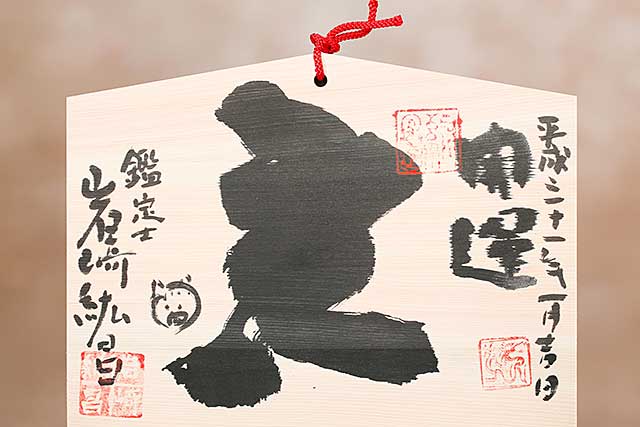 平成三十一年一月吉日
開運
亥
鑑定士
岩崎紘昌